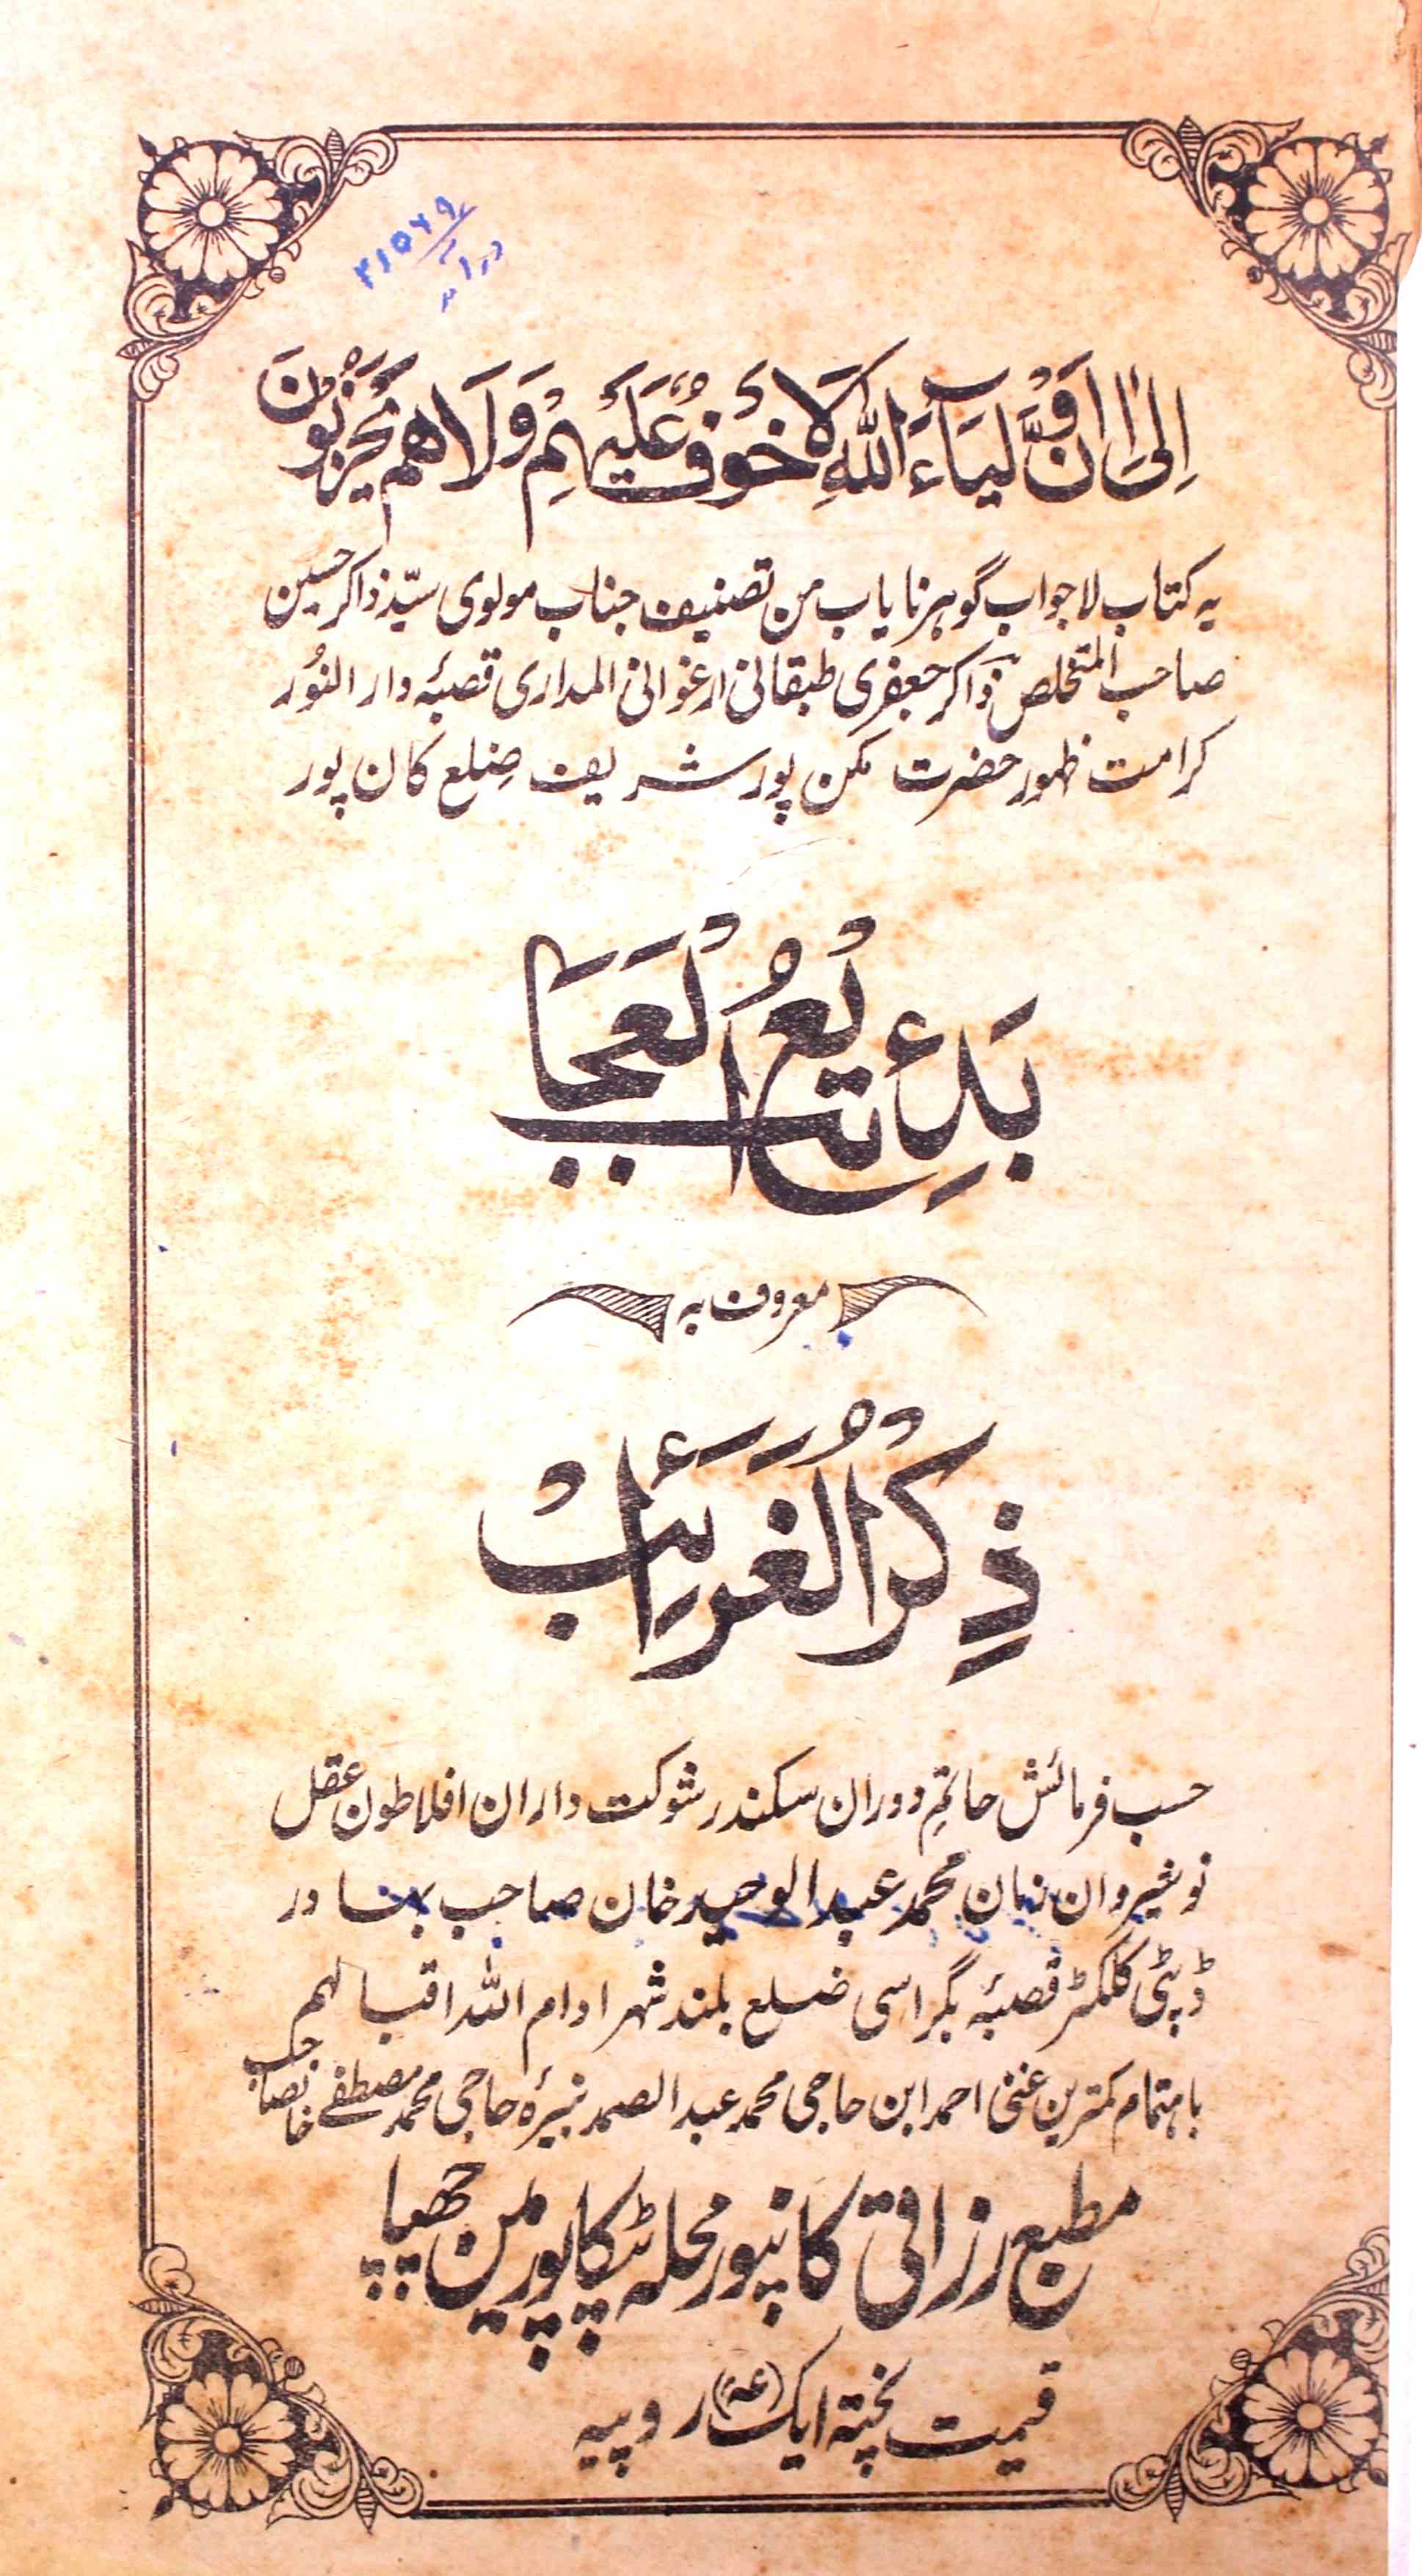 اِلیٰ اِنَّ اَوْلِیَآءَ اللّٰہِ لَا خَوْفٌ عَلَیْہِمْ وَلَا ہُمْ یَحْزَنُوْنَ
یہ کتاب لاجواب گوہر نایاب من تصنیف جناب مولوی سیّد ذاکر حسین
صاحب المتخلص بہ ذاکر جعفری طبقاتی ارغوانی المداری قصبۂ دار النُور
کرامت ظہور حضرت مکن پور شریف ضِلع کان پور
بَدِیْعُ الْعَجَائِبْ
معروف بہ
ذِکْرُ الْغَرَائِبْ
حسب فرمائش حاتمِ دوران سکندر شوکت داران افلاطون عقل
نوشیروان زمان محمد عبدالوحید خان صاحب بہادر
ڈپٹی کلکٹر قصبۂ بگراسی ضلع بلند شہر ادام اللہ اقبالہم
باہتمام کمترین غنی احمد ابن حاجی محمد عبدالصمد نبیرۂ حاجی محمد مصطفےٰ خانصاحب
مطبع رزاقی کانپور محلہ ٹپکاپور مین چھپا
قیمت پختہ ایک روپیہ